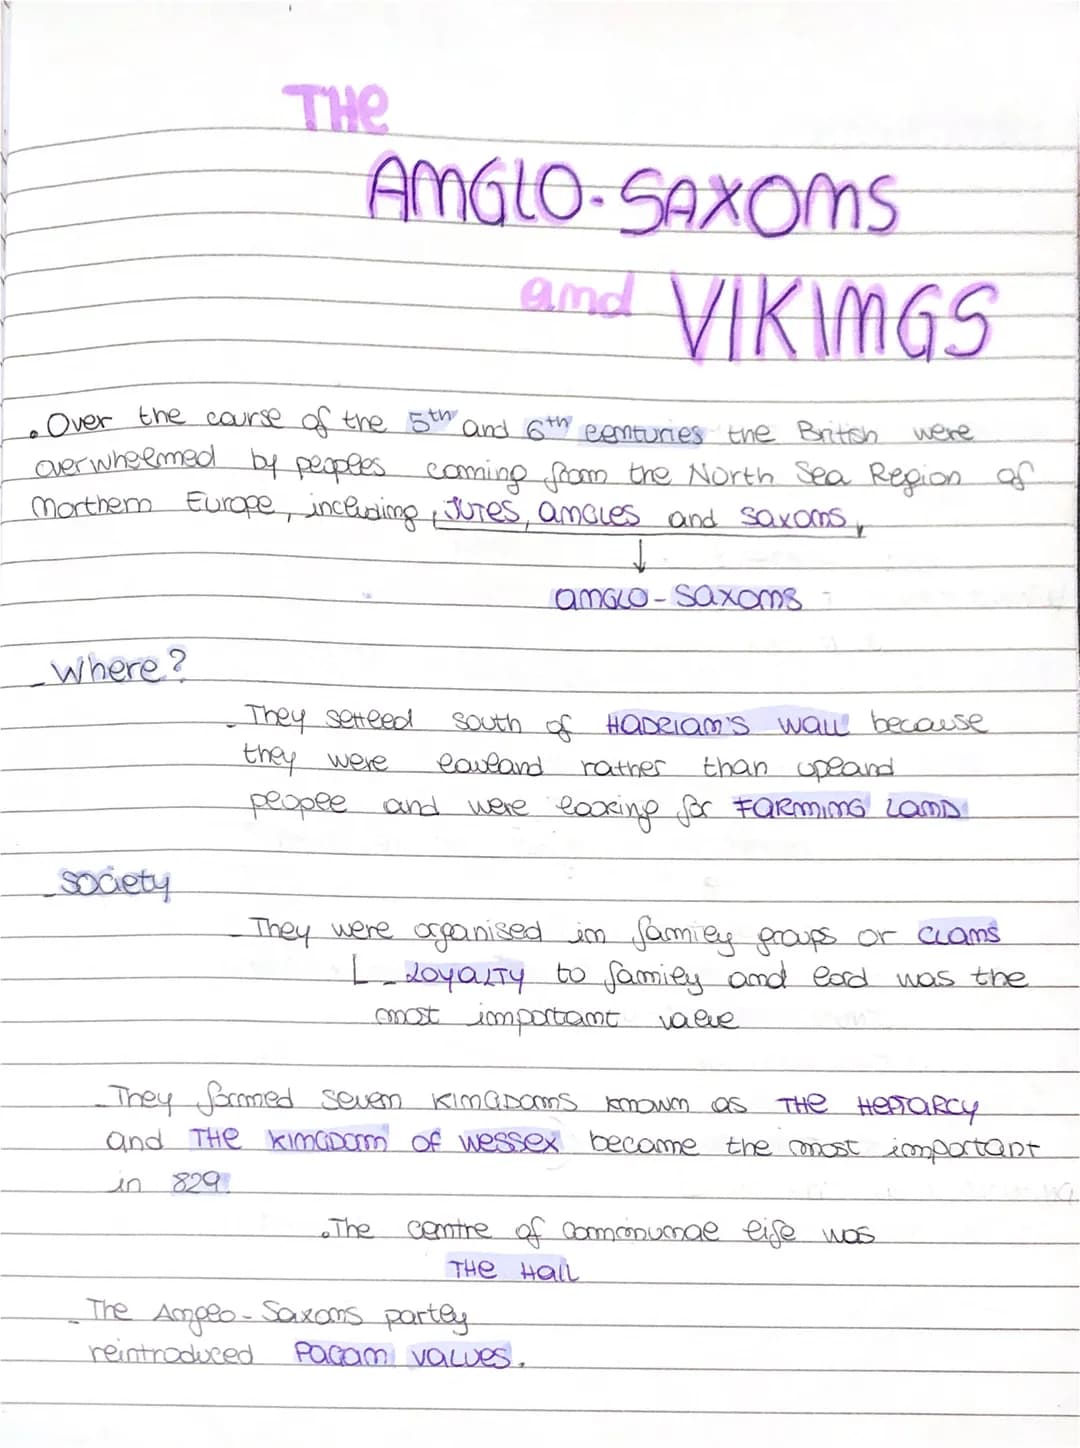 THE
ANGLO-SAXONS
and VIKINGS
• Over the course of the 5th and 6th centuries the British were
overwhelmed by peoples coming from the North Sea Region of
Northern Europe, including, JUTES, ANGLES and SAXONS,
↓
ANGLO-SAXONS
- Where?
- They settled south of HADRIAN'S WALL because
they were lowland rather than upland
people and were looking for FARMING LAND
- Society
- They were organised in family groups or CLANS
L - LOYALTY to family and lord was the
most important value
- They formed seven KINGDOMS known as THE HEPTARCY
and THE KINGDOM OF WESSEX became the most important
in 829.
• The centre of communal life was
THE HALL
- The Anglo-Saxons partly
reintroduced PAGAN VALUES.